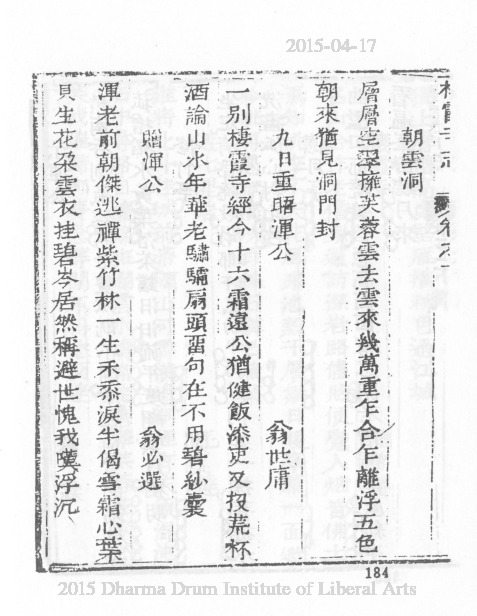 2015-04-17
棲霞寺志
朝雲洞
層層空翠擁芙蓉雲去雲來幾萬重乍合乍離浮五色
朝來猶見洞門封
九日重晤渾公 翁世庸
一別棲霞寺經今十六霜遠公猶健飯漆吏又投荒杯
酒論山水年華老驌驦扇頭留句在不用碧紗囊
贈渾公 翁必選
渾老前朝傑逃禪紫竹林一生禾黍淚半偈雪霜心葉
貝生花朶雲衣挂碧岑居然稱避世愧我嘆浮沉
184
2015 Dharma Drum Institute of Liberal Arts